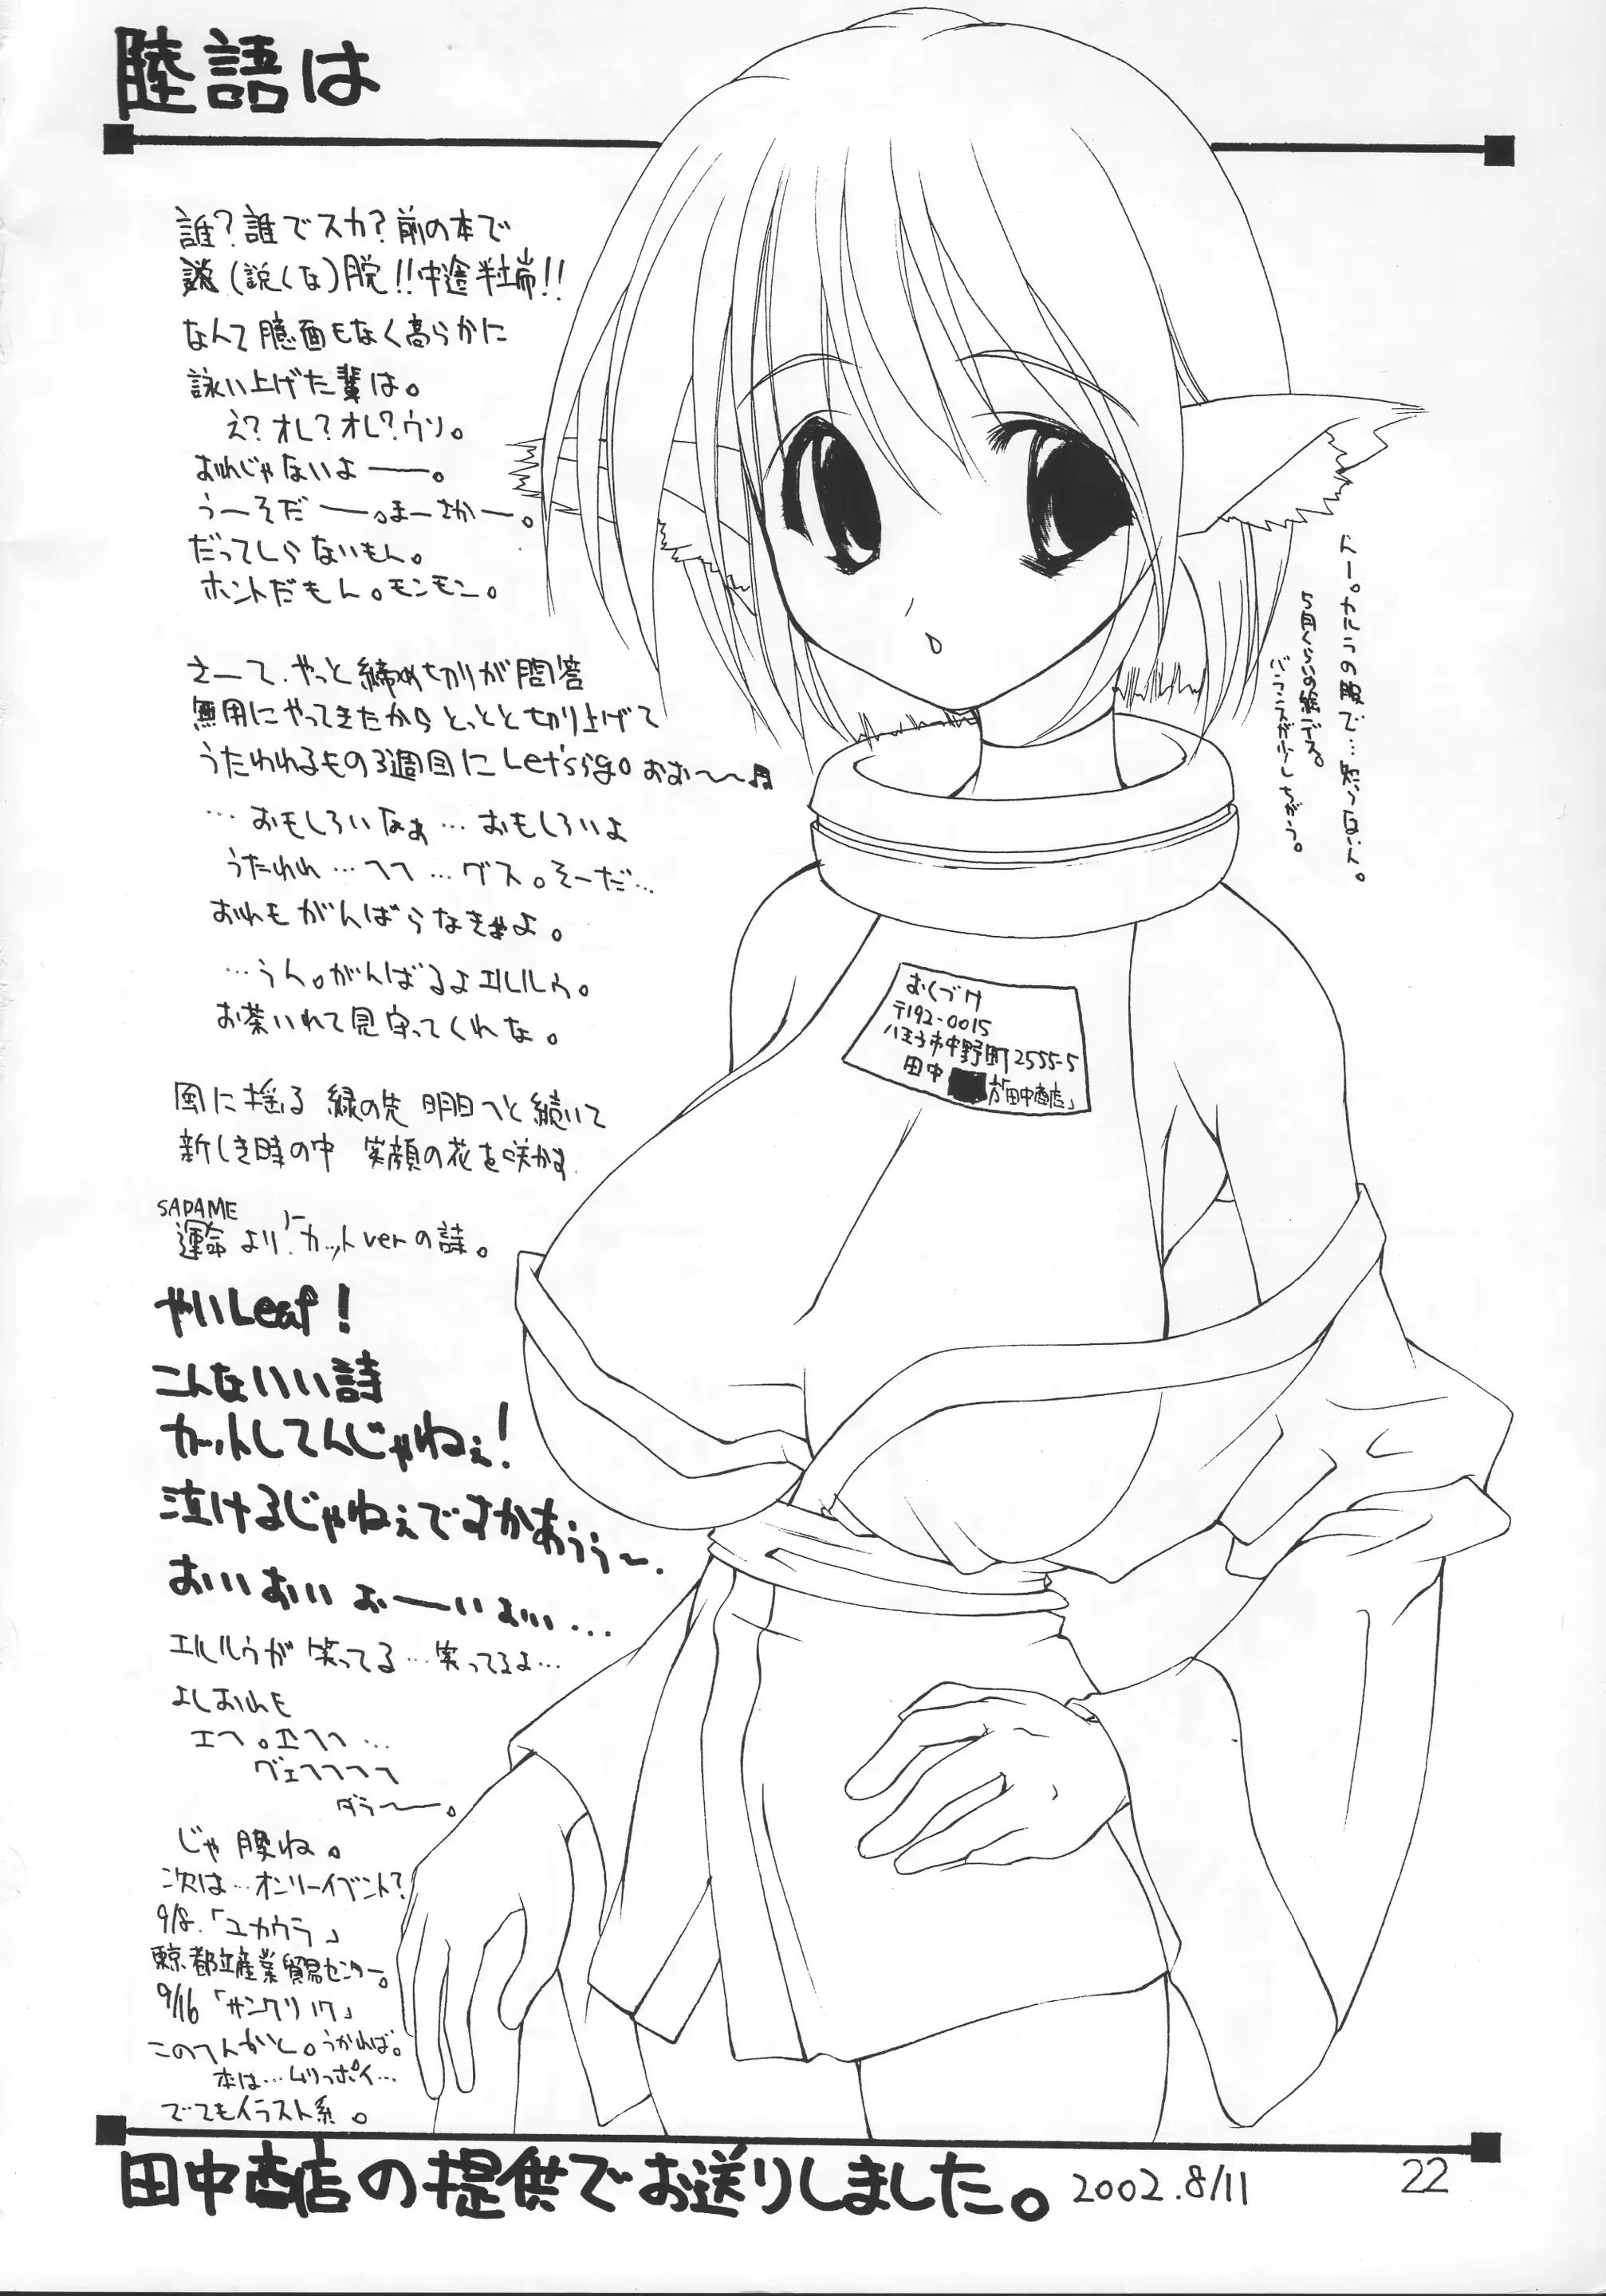 陸語は
誰?誰でスカ?前の本で
(説くな)脱!!中途半端!!
なんて臆面もなく高らかに
詠い上げた輩は。
え?オレ?オレ?ウソ。
おれじゃないよ――。
うーそだ――。まーさかー。
だってしらないもん。
ホントだもん。モンモン。
さーて、やっと締め切りが問答
無用にやってきたからとっとと切り上げて
うたわれるもの3週目にLet's go おお〜〜♬
…おもしろいなぁ…おもしろいよ
うたわれ…へへ…グス。そーだ…
おれもがんばらなきゃよ。
…うん。がんばるよエルルゥ。
お茶いれて見守ってくれな。
風に揺る 緑の先 明日へと続いて
新しき時の中 笑顔の花を咲かす
SADAME
運命より!カットverの詩。
やいLeaf!
こんないい詩
カットしてんじゃねぇ!
泣けるじゃねぇですかあぅぅ〜.
おいいおいいぉーいぉいい…
エルルゥが笑ってる…笑ってるよ…
よしおれも
エへ。エへへ…
グェへへへへ
ダラ〜〜。
じゃ ね。
次は…オンリーイベント?
9/8.「ユカウラ」
東京都立産業貿易センター。
9/16「サンクリ17」
このへんかと。うかれば。
本は…ムリっポイ…
でてもイラスト系。
んー。カルラの服で…思っない人。
5月くらいの絵デス。
バランスが少しちがう。
おくづけ
〒192-0015
八王子市中野町2555-5
田中 方「田中商店」
田中商店の提供でお送りしました。2002.8/11
22